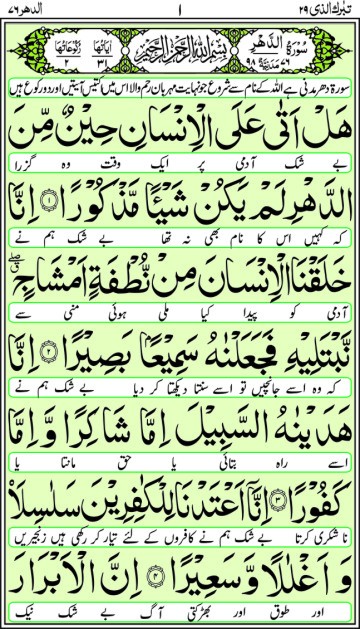 تبارك الذی ۲۹ ١ الدهر ۷۶
سُورَةُ الدَّهْرِ بِسْمِ اللّٰهِ الرَّحْمٰنِ الرَّحِيْمِ اٰیَاتُهَا ۳۱ رُکُوْعَاتُهَا ۲
سورۃ دھر مدنی ہے اللہ کے نام سے شروع جو نہایت مہربان رحم والا اس میں اکتیس آیتیں اور دو رکوع ہیں
هَلْ اَتٰى عَلَى الْاِنْسَانِ حِيْنٌ مِّنَ
بے شک آدمی پر ایک وقت وہ گزرا
الدَّهْرِ لَمْ يَكُنْ شَيْئًا مَّذْكُوْرًا ۱ اِنَّا
کہ کہیں اس کا نام بھی نہ تھا بے شک ہم نے
خَلَقْنَا الْاِنْسَانَ مِنْ نُّطْفَةٍ اَمْشَاجٍ
آدمی کو پیدا کیا ملی ہوئی منی سے
نَّبْتَلِيْهِ فَجَعَلْنٰهُ سَمِيْعًۢا بَصِيْرًا ۲ اِنَّا
کہ وہ اسے جانچیں تو اسے سنتا دیکھتا کر دیا بے شک ہم نے
هَدَيْنٰهُ السَّبِيْلَ اِمَّا شَاكِرًا وَّاِمَّا
اسے راہ بتائی یا حق مانتا یا
كَفُوْرًا ۳ اِنَّاۤ اَعْتَدْنَا لِلْكٰفِرِيْنَ سَلٰسِلَا۟
نا شکری کرتا بے شک ہم نے کافروں کے لئے تیار کر رکھی ہیں زنجیریں
وَاَغْلٰلًا وَّسَعِيْرًا ۴ اِنَّ الْاَبْرَارَ
اور طوق اور بھڑکتی آگ بے شک نیک